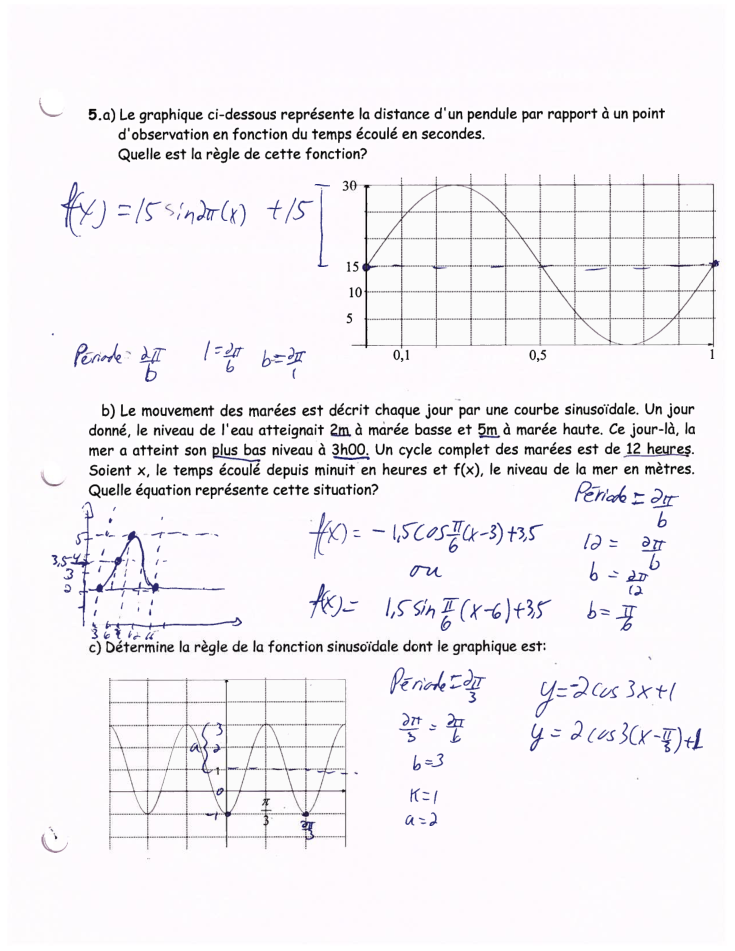 5.a) Le graphique ci-dessous représente la distance d'un pendule par rapport à un point
d'observation en fonction du temps écoulé en secondes.
Quelle est la règle de cette fonction?
f(x) = 15 sin 2π(x) + 15
30
15
10
5
0,1
0,5
1
Période = 2π/b
1 = 2π/b
b = 2π/1
b) Le mouvement des marées est décrit chaque jour par une courbe sinusoïdale. Un jour
donné, le niveau de l'eau atteignait 2m à marée basse et 5m à marée haute. Ce jour-là, la
mer a atteint son plus bas niveau à 3h00. Un cycle complet des marées est de 12 heures.
Soient x, le temps écoulé depuis minuit en heures et f(x), le niveau de la mer en mètres.
Quelle équation représente cette situation?
Période = 2π/b
12 = 2π/b
b = 2π/12
b = π/6
f(x) = -1,5 cos π/6 (x-3) + 3,5
ou
f(x) = 1,5 sin π/6 (x-6) + 3,5
5
3,5 4
3
2
3 6 9 12 15
c) Détermine la règle de la fonction sinusoïdale dont le graphique est:
3
a 2
1
0
-1
π/3
2π/3
Période = 2π/3
2π/3 = 2π/b
b = 3
K = 1
a = 2
y = -2 cos 3x + 1
y = 2 cos 3(x - π/3) + 1